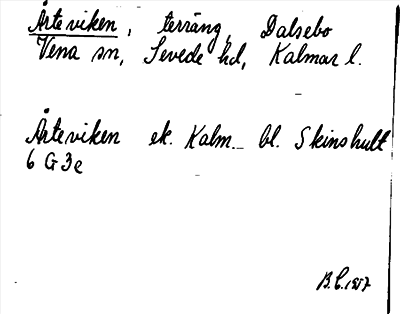 Årteviken, terräng, Dalsebo
Vena sn, Sevede hd, Kalmar l.
Årteviken ek. Kalm. bl. Skinshult
6 G 3e
B.C. 1957